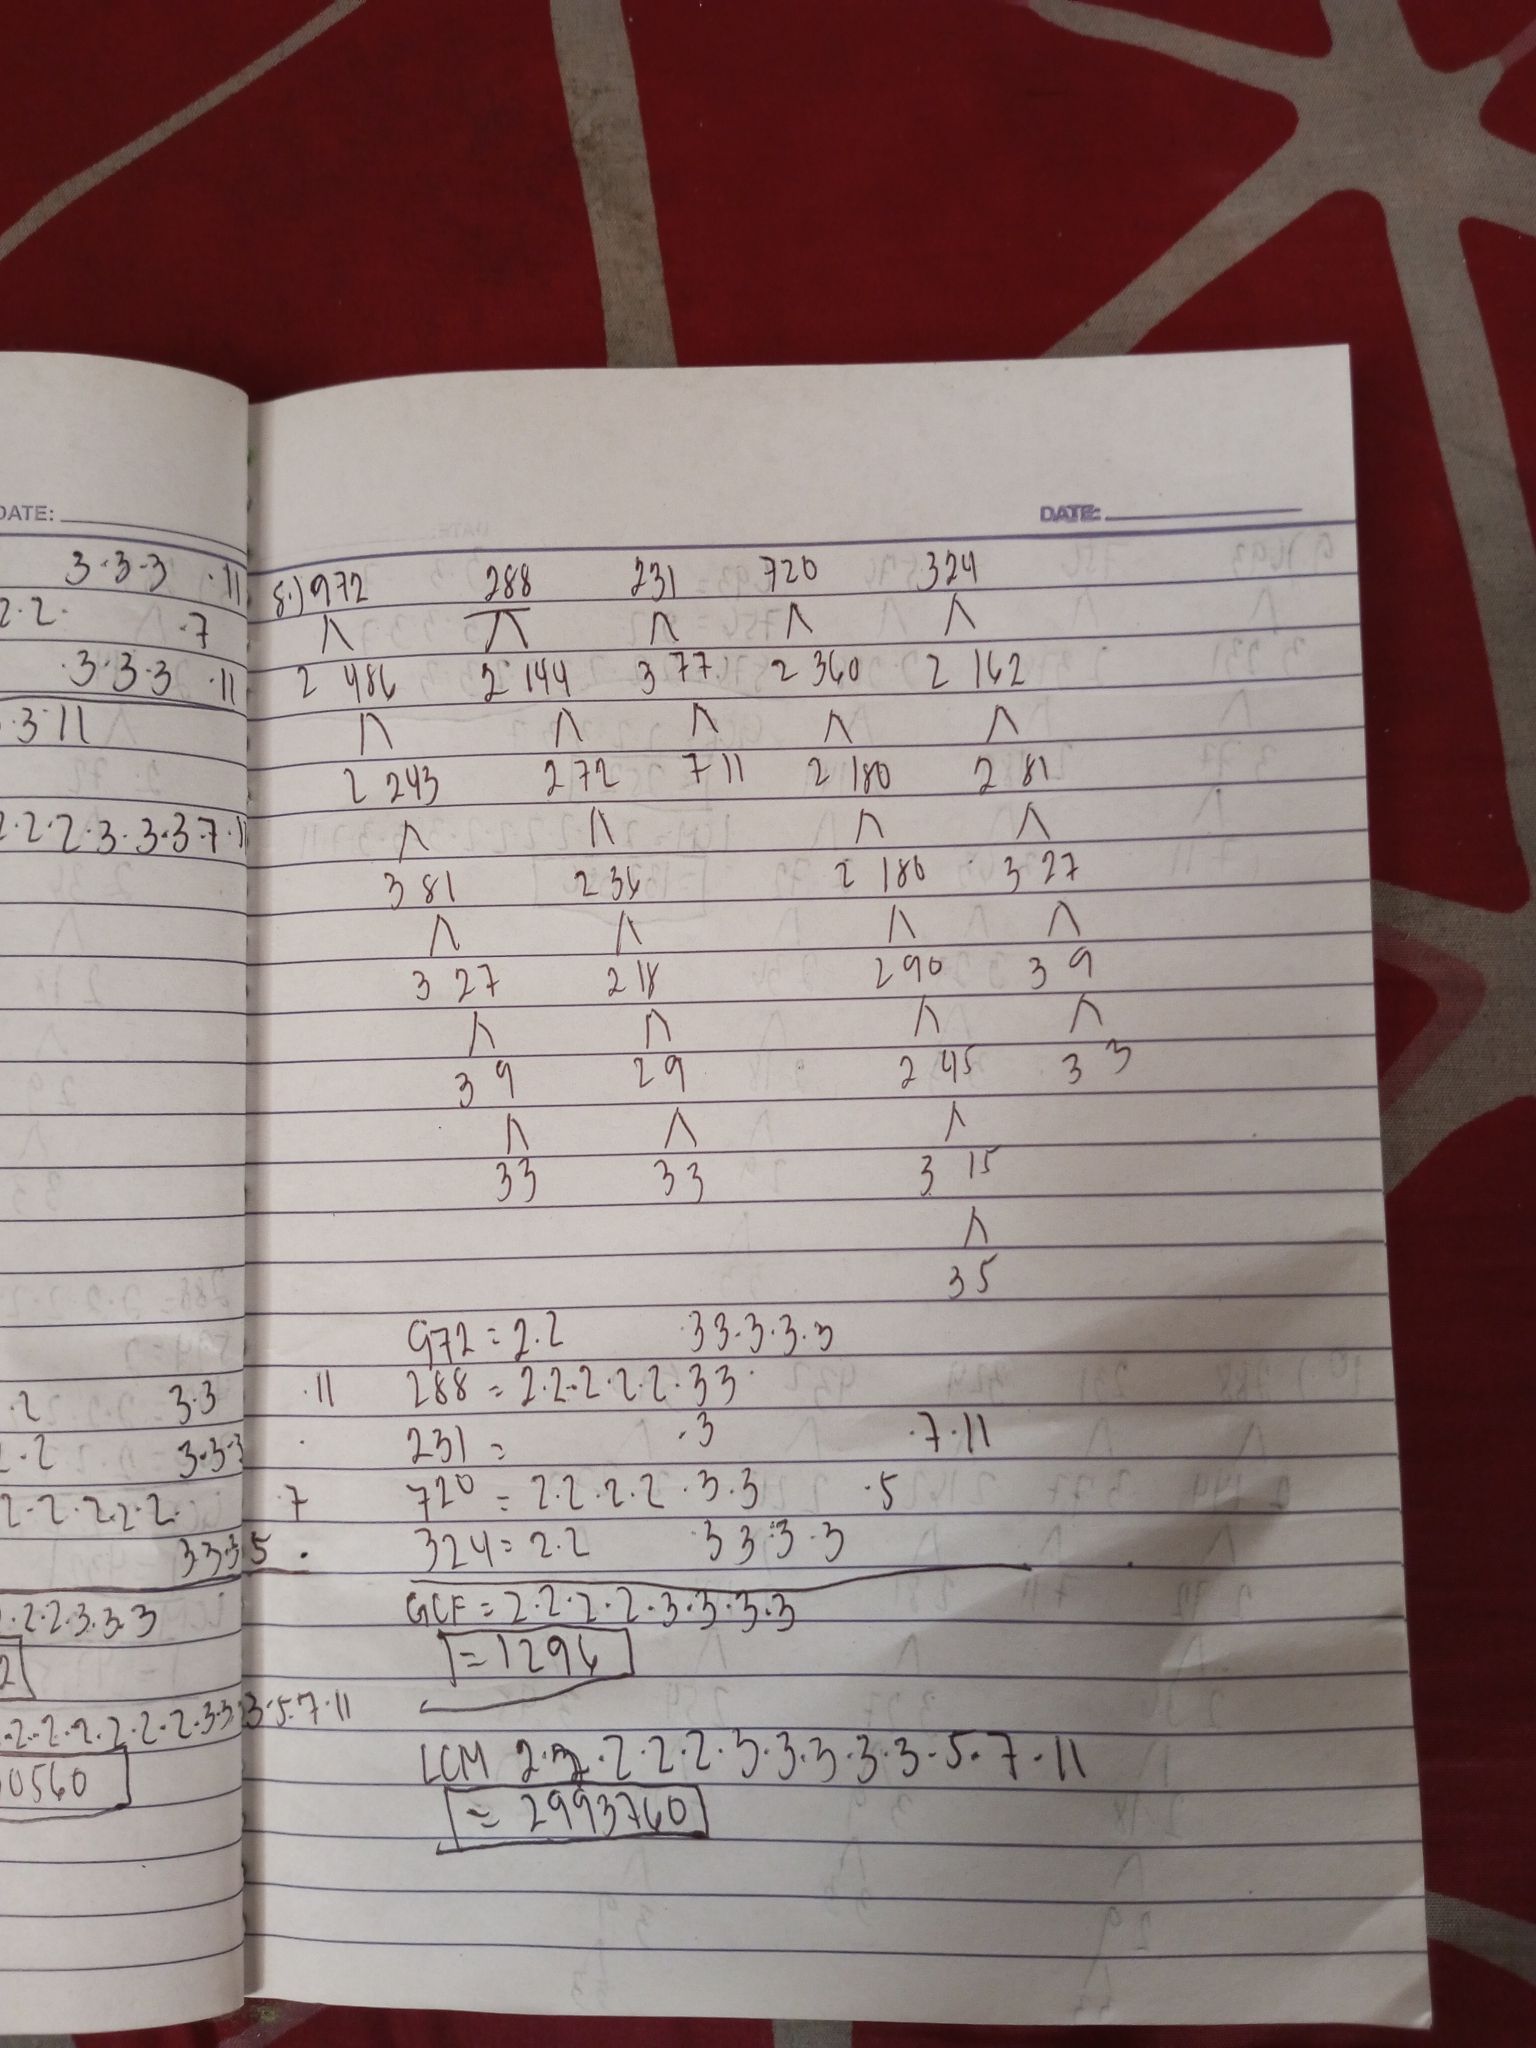 DATE:
3·3·3 ·11
2·2· ·7
·3·3·3 ·11
·3·11
2·2·2·3·3·3·7·11
·2 3·3 ·11
2·2 3·3·3 ·
2·2·2·2·2· ·7
3 3·3 5 ·
·2·2·3·3·3
2
·2·2·2·2·2·2·3·3·3·5·7·11
0560
DATE:
8.) 972 288 231 720 324
2 486 2 144 3 77 2 360 2 162
2 243 2 72 7 11 2 180 2 81
3 81 2 36 2 180 3 27
3 27 2 18 2 90 3 9
3 9 2 9 2 45 3 3
3 3 3 3 3 15
3 5
972 = 2·2 ·3 3·3·3·3
288 = 2·2·2·2·2·3 3·
231 = ·3 ·7·11
720 = 2·2·2·2·3·3 ·5
324 = 2·2 ·3 3·3·3
GCF = 2·2·2·2·3·3·3·3
= 1296
LCM 2·2·2·2·2·3·3·3·3·3·5·7·11
= 2993760